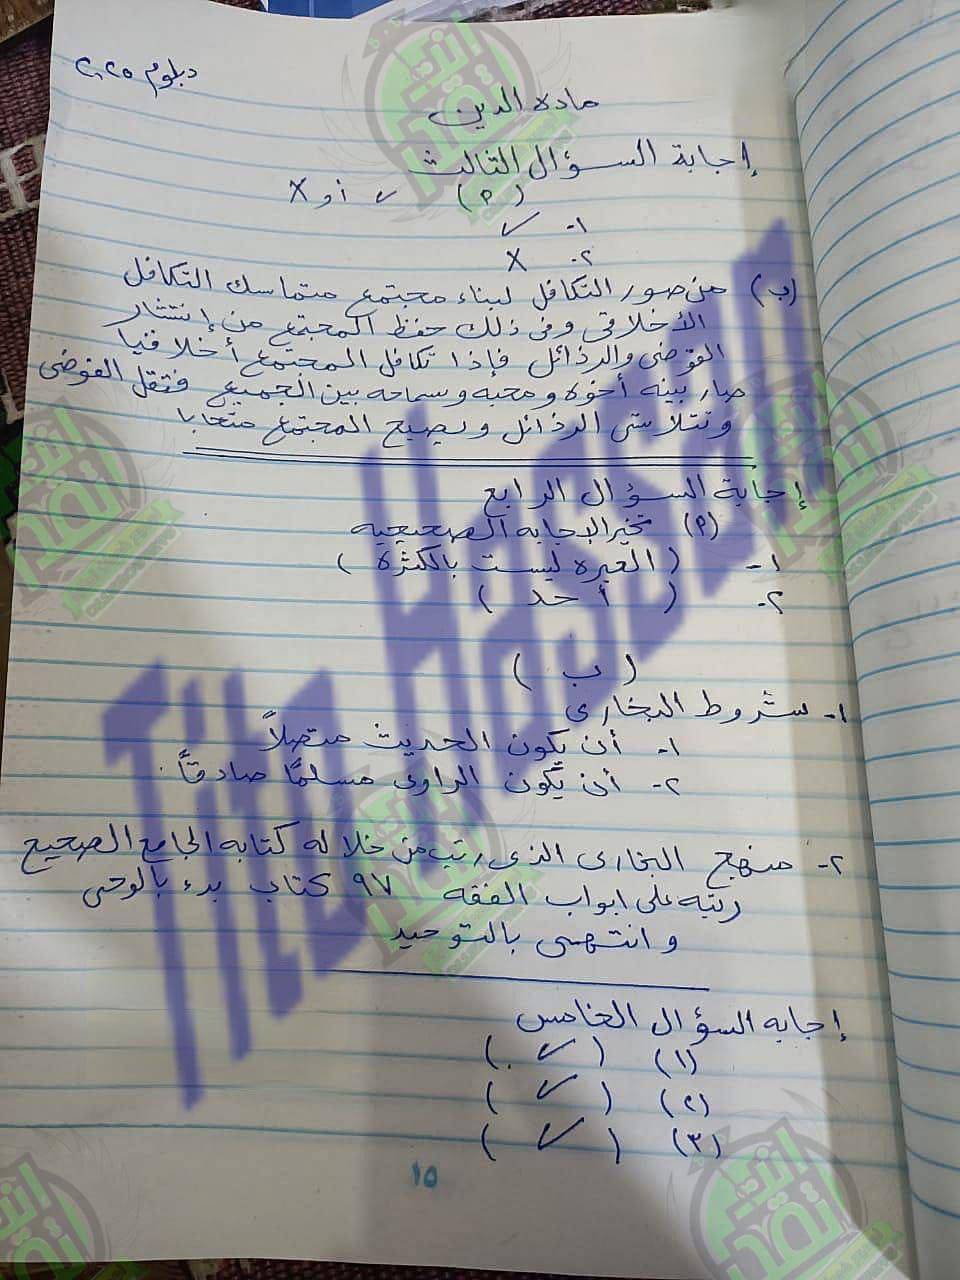 دبلوم ٢٠٢٥
مادة الدين
إجابة السؤال الثالث
(٩) ✓ أو X
١- ✓
٢- X
(ب) من صور التكافل لبناء مجتمع متماسك التكافل
الأخلاقى وفى ذلك حفظ المجتمع من إنتشار
الفوضى والرذائل فإذا تكافل المجتمع أخلاقيا
صار بينه أخوه ومحبه وسماحه بين الجميع فتقل الفوضى
وتتلاشى الرذائل ويصبح المجتمع متحابا
إجابة السؤال الرابع
(٩) تخير الإجابه الصحيحيه
١- (العبره ليست بالكثرة)
٢- (أحد)
(ب)
١- شروط البخارى
١- أن يكون الحديث متصلاً
٢- أن يكون الراوى مسلمًا صادقاً
٢- منهج البخارى الذى رتب من خلاله كتابه الجامع الصحيح
رتبه على ابواب الفقه ٩٧ كتاب بدء بالوحى
وانتهى بالتوحيد
إجابه السؤال الخامس
(١) (✓)
(٢) (✓)
(٣) (✓)
١٥
Tito Hassan